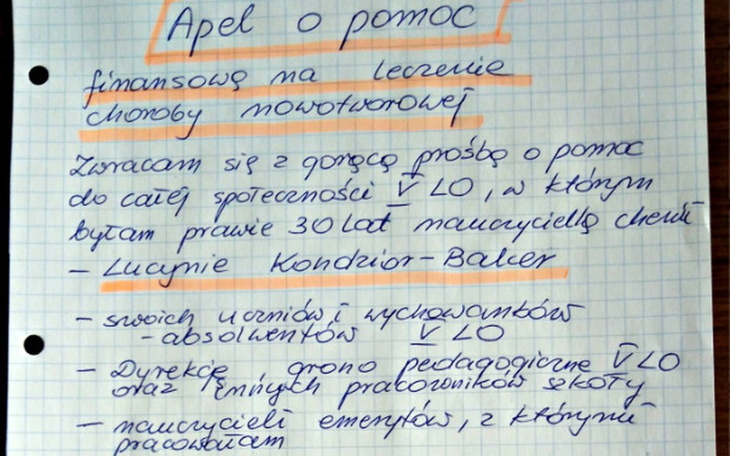 Apel o pomoc
finansową na leczenie
choroby nowotworowej
Zwracam się z gorącą prośbą o pomoc
do całej społeczności V LO, w którym
byłam prawie 30 lat nauczycielką chemii
- Lucynie Kondzior-Baker
- swoich uczniów i wychowanków
- absolwentów V LO
- Dyrekcję, grono pedagogiczne V LO
oraz innych pracowników szkoły
- nauczycieli emerytów, z którymi
pracowałam